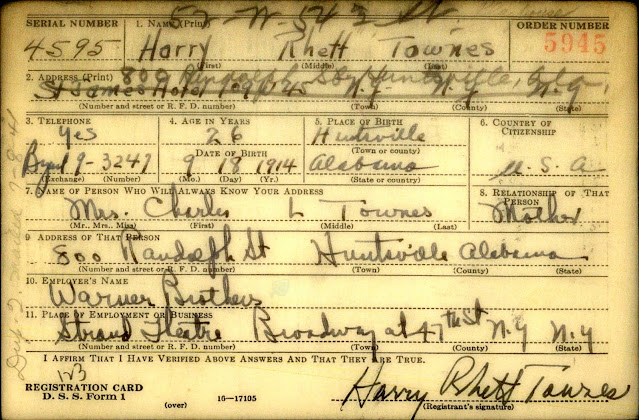 52 W 54 St.
SERIAL NUMBER 1. NAME (Print) ORDER NUMBER
4595 Harry Rhett Townes 5945
(First) (Middle) (Last)
2. ADDRESS (Print) 800 Randolph St, Huntsville, Ala,
St James Hotel 109 W 45 N.Y. N.Y. N.Y.
(Number and street or R. F. D. number) (Town) (County) (State)
3. TELEPHONE 4. AGE IN YEARS 5. PLACE OF BIRTH 6. COUNTRY OF CITIZENSHIP
Yes 26 Huntsville
DATE OF BIRTH (Town or county)
9-3247 9 18 1914 Alabama U. S. A
(Exchange) (Number) (Mo.) (Day) (Yr.) (State or country)
7. NAME OF PERSON WHO WILL ALWAYS KNOW YOUR ADDRESS 8. RELATIONSHIP OF THAT PERSON
Mrs. Charles L Townes Mother
(Mr., Mrs., Miss) (First) (Middle) (Last)
9 ADDRESS OF THAT PERSON
800 Randolph St Huntsville Alabama
(Number and street or R. F. D. number) (Town) (County) (State)
10. EMPLOYER'S NAME
Warner Brothers
11. PLACE OF EMPLOYMENT OR BUSINESS
Strand Theatre Broadway at 47th St N.Y N.Y
(Number and street or R. F. D. number) (Town) (County) (State)
I AFFIRM THAT I HAVE VERIFIED ABOVE ANSWERS AND THAT THEY ARE TRUE.
123
REGISTRATION CARD
D. S. S. Form 1 (over) 16—17105 Harry Rhett Townes
(Registrant's signature)